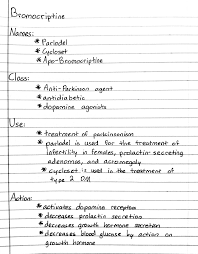 Bromocriptine
Names:
* Parlodel
* Cycloset
* Apo-Bromocriptine
Class:
* Anti-Parkinson agent
* antidiabetic
* dopamine agonists
Use:
* treatment of parkinsonism
* parlodel is used for the treatment of
infertility in females, prolactin secreting
adenomas, and acromegaly
* cycloset is used in the treatment of
type 2 DM
Action:
* activates dopamine receptors
* decreases prolactin secretion
* decreases growth hormone secretion
* decreases blood glucose by action on
growth hormone